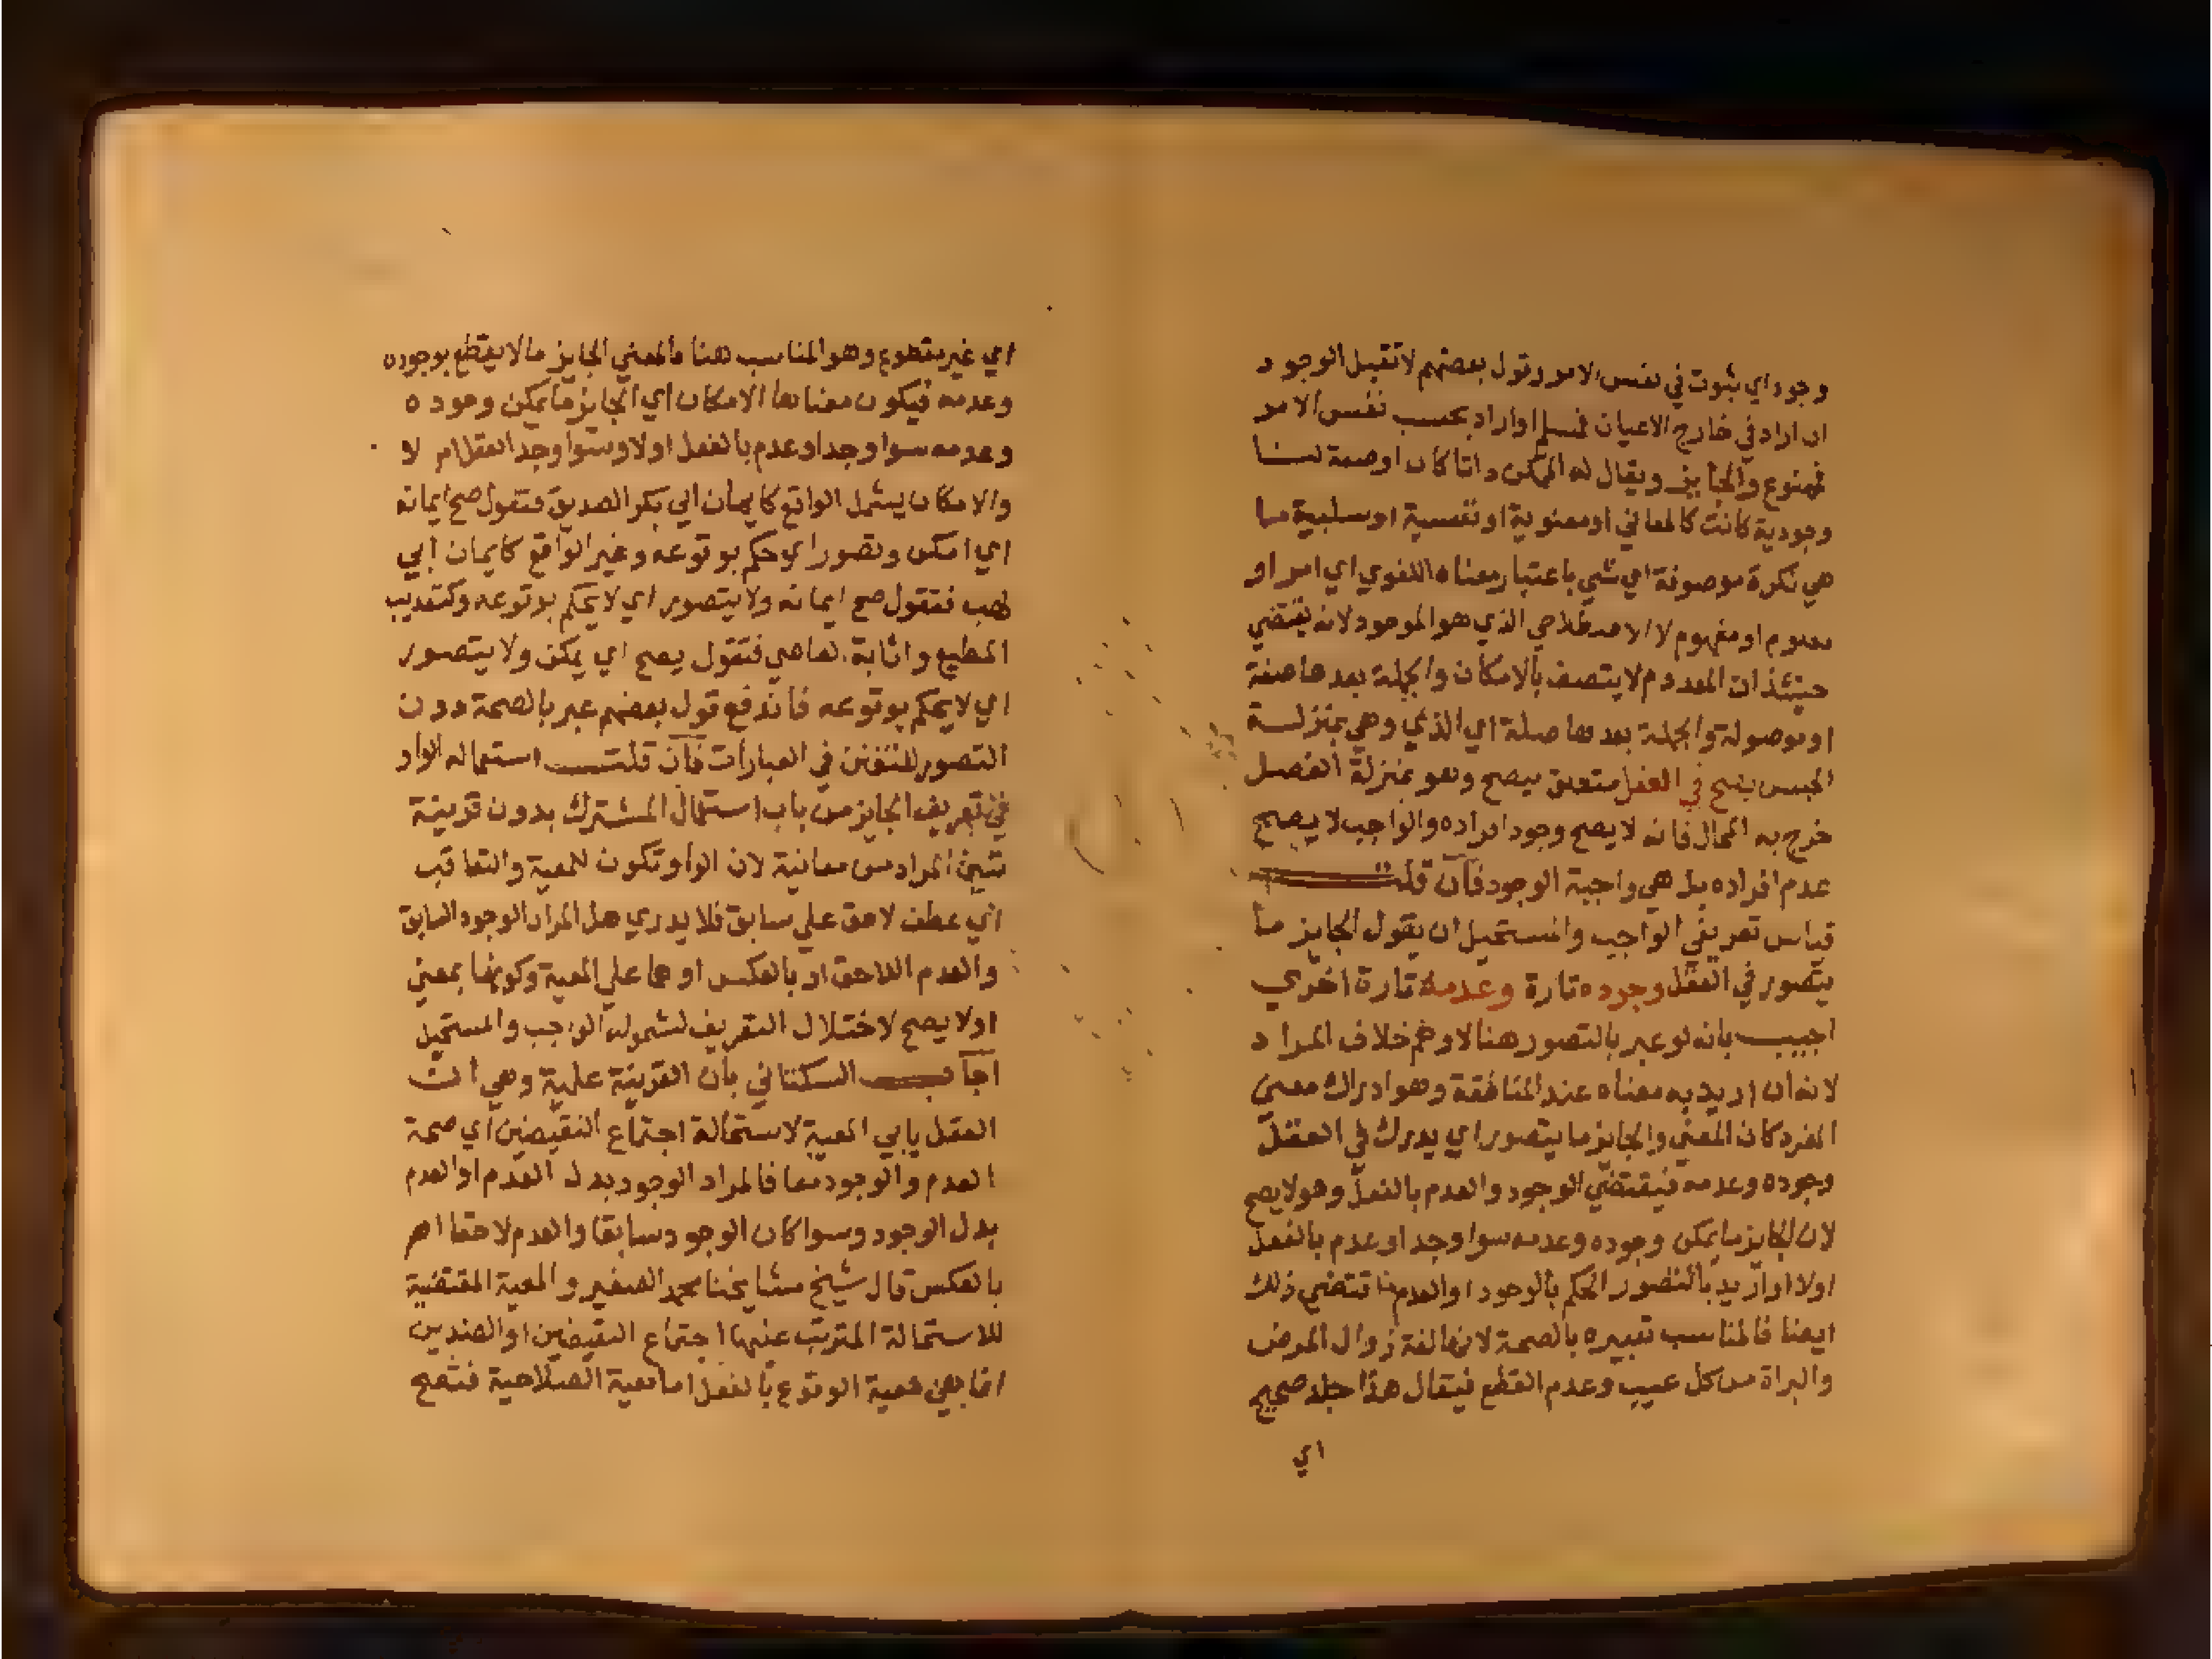 وجود اي ثبوت في نفس الامر وقول بعضهم لا تقبل الوجود
ان اراد في خارج الاعيان فمسلم او اراد بحسب نفس الامر
فممنوع والجايز ويقال له الممكن ذاتا كان او صفة لنا
وجودية كانت كالمعاني او معنوية او نفسية او سلبية ما
هي نكرة موصوفة اي شي باعتبار معناه اللغوي اي امر او
معدوم او مفهوم لا الذي هو الموجود لانه يقتضي
حينئذ ان المعدوم لا يتصف بالامكان والجملة بعدها صفة
او موصولة والجملة بعدها صلة اي الذي وهي بمنزلة
الجنس يصح في العقل متعلق بيصح وهو بمنزلة الفصل
خرج به المحال فانه لا يصح وجود افراده والواجب لا يصح
عدم افراده بل هي واجبة الوجود فان قلت
قياس تعريفي الواجب والمستحيل ان يقول الجايز ما
يتصور في العقل وجوده تارة وعدمه تارة اخري
اجيب بانه لو عبر بالتصور هنا لاوهم خلاف المراد
لانه ان اريد به معناه عند المناطقة وهو ادراك معني
المفرد كان المعني والجايز ما يتصور اي يدرك في العقل
وجوده وعدمه فيقتضي الوجود والعدم بالفعل وهو لا يصح
لان الجايز ما يمكن وجوده وعدمه سوا وجد او عدم بالفعل
اولا او اريد بالتصور الحكم بالوجود او العدم تقتضي ذلك
ايضا فالمناسب تعبيره بالصحة لانها لغة زوال المرض
والبراة من كل عيب وعدم القطع فيقال هذا جلد صحيح
اي
اي غير مقطوع وهو المناسب هنا فالمعني الجايز ما لا يقطع بوجوده
وعدمه فيكون معناها الامكان اي الجايز ما يمكن وجوده
وعدمه سوا وجد او عدم بالفعل اولا وسوا وجد العقل ام لا
والامكان يشمل الواقع كايمان ابي بكر الصديق فتقول صح ايمانه
اي امكن وتصور اي حكم بوقوعه وغير الواقع كايمان ابي
لهب فتقول صح ايمانه ولا يتصور اي لا يحكم بوقوعه وكتعذيب
المطيع واثابة العاصي فتقول يصح اي يمكن ولا يتصور
اي لا يحكم بوقوعه فاندفع قول بعضهم عبر بالصحة دون
التصور للتفنن في العبارات فان قلت استعماله الواو
في تعريف الجايز من باب استعمال المشترك بدون قرينة
تبين المراد من معانية لان الواو تكون للمعية والتعاقب
اي عطف لاحق علي سابق فلا يدري هل المراد الوجود السابق
والعدم اللاحق او بالعكس او هما علي المعية وكونها بمعني
او لا يصح لاختلال التعريف لشموله الواجب والمستحيل
اجاب السكتاني بان القرينة علية وهي ان
العقل يابي المعية لاستحالة اجتماع النقيضين اي صحة
العدم والوجود معا فالمراد الوجود بدل العدم او العدم
بدل الوجود وسوا كان الوجود سابقا والعدم لاحقا ام
بالعكس قال شيخ مشايخنا محمد الصغير والمعية المقتضية
للاستحالة المترتب عنها اجتماع النقيضين او الضدين
انما هي معية الوقوع بالفعل اما معية الصلاحية فتصح